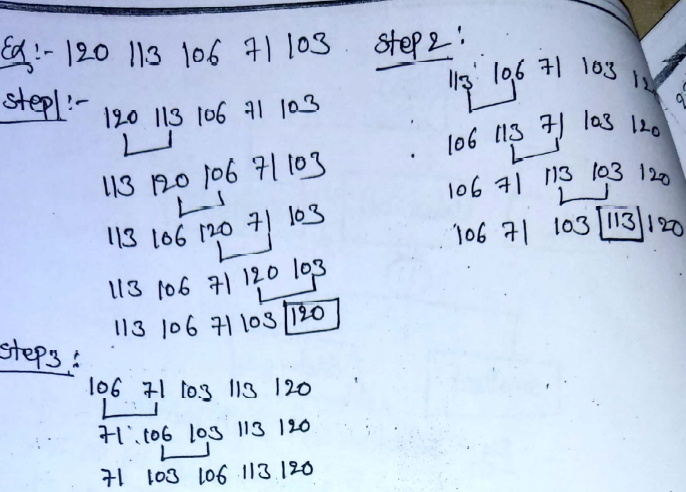 Ex:- 120 113 106 71 103
Step1:-
120 113 106 71 103
113 120 106 71 103
113 106 120 71 103
113 106 71 120 103
113 106 71 103 120
Step 2:
113 106 71 103 12
106 113 71 103 120
106 71 113 103 120
106 71 103 113 120
Step3:
106 71 103 113 120
71 106 103 113 120
71 103 106 113 120